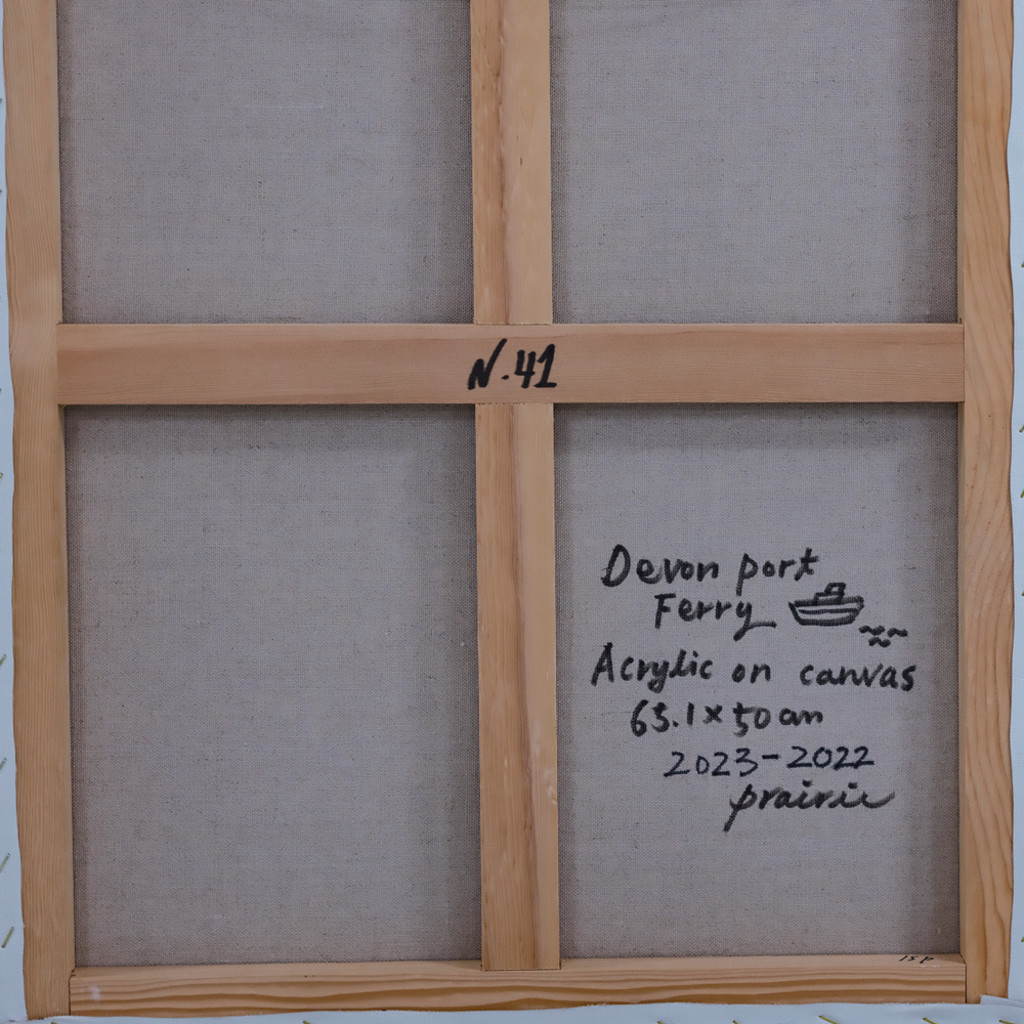 N.41
Devon port
Ferry
Acrylic on canvas
65.1×50cm
2023-2022
prairie
15P